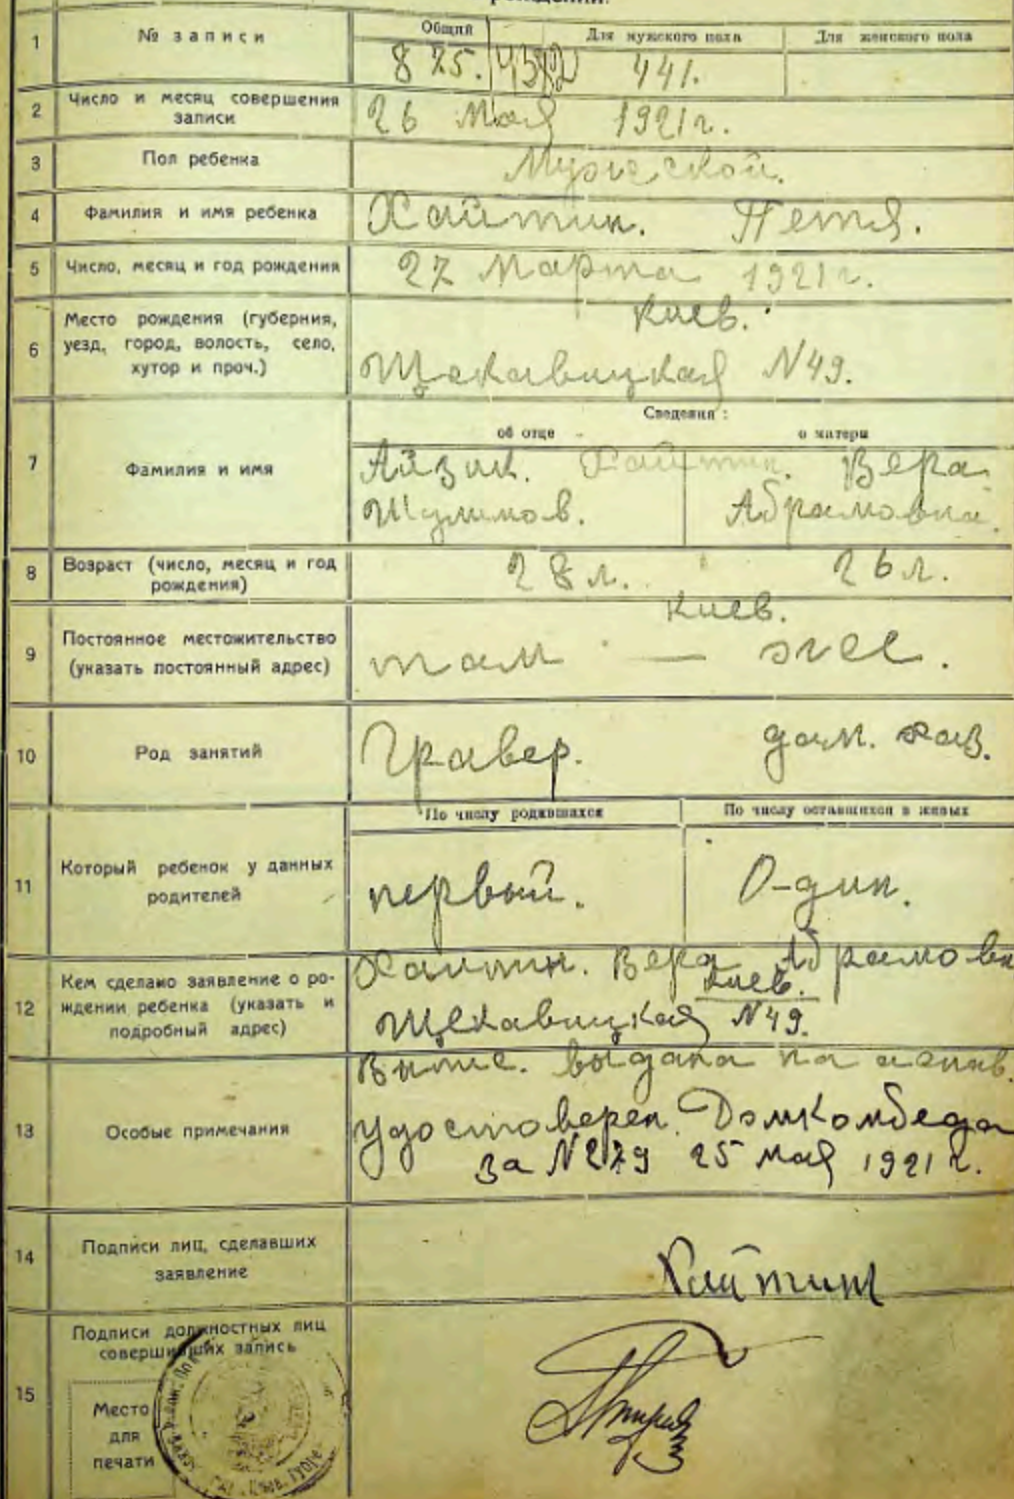 1 № записи
Общий Для мужского пола Для женского пола
875. 441.
2 Число и месяц совершения
записи
26 Мая 1921 г.
3 Пол ребенка
Мужеской.
4 Фамилия и имя ребенка
Хайтин. Петя.
5 Число, месяц и год рождения
27 Марта 1921 г.
6 Место рождения (губерния,
уезд, город, волость, село,
хутор и проч.)
Киев.
Щекавицкая N49.
7 Фамилия и имя
Сведения:
об отце о матери
Айзик. Хайтин. Вера
Шулимов. Абрамовна.
8 Возраст (число, месяц и год
рождения)
28 л. 26 л.
9 Постоянное местожительство
(указать постоянный адрес)
Киев.
там — же.
10 Род занятий
Гравер. дом. хоз.
11 Который ребенок у данных
родителей
По числу родившихся По числу оставшихся в живых
первый. О-дин.
12 Кем сделано заявление о ро-
ждении ребенка (указать и
подробный адрес)
Хайтин. Вера Абрамовн
Киев.
Щекавицкая N49.
13 Особые примечания
выдана на основ.
удостоверен. Домкомбеда
за N279 25 мая 1921 г.
14 Подписи лиц, сделавших
заявление
Хайтин
15 Подписи должностных лиц
совершивших запись
Место
для
печати